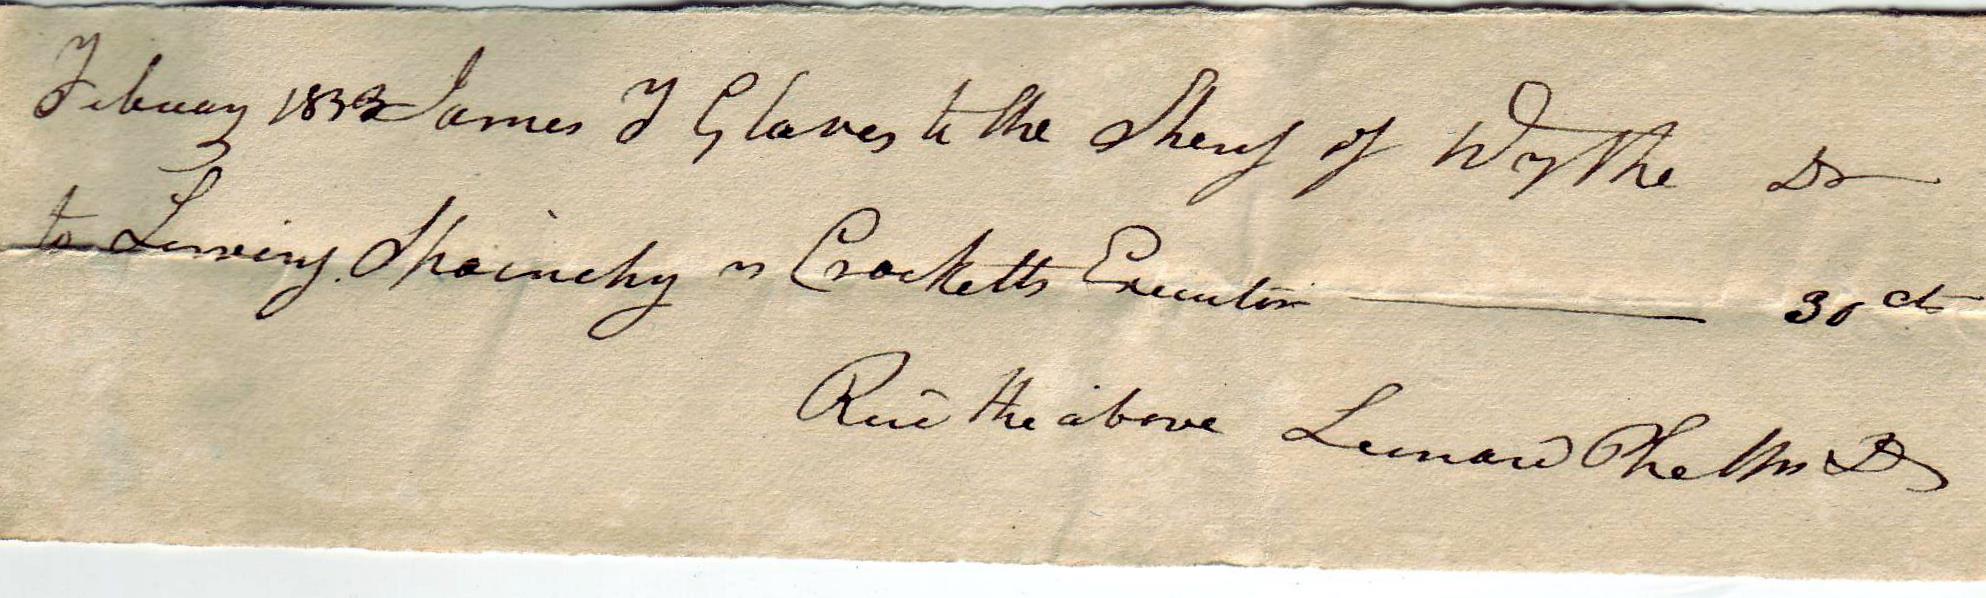 Febuary 1833 James T Glaves to the Sherif of Wythe Dr
to Serving Spa in chy vs Crocketts Executor 30 cts
Recd the above Leonard Phelps DS